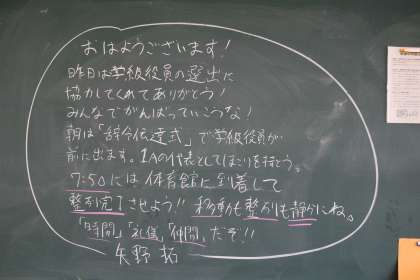 おはようございます!
昨日は学級役員の選出に
協力してくれてありがとう!
みんなでがんばっていこうな!
朝は「辞令伝達式」で学級役員が
前に出ます。1Aの代表としてほこりを持とう。
7:50には体育館に到着して
整列完了させよう!! 移動も整列も静かにね。
「時間」「礼儀」「仲間」だぞ!!
矢野 拓